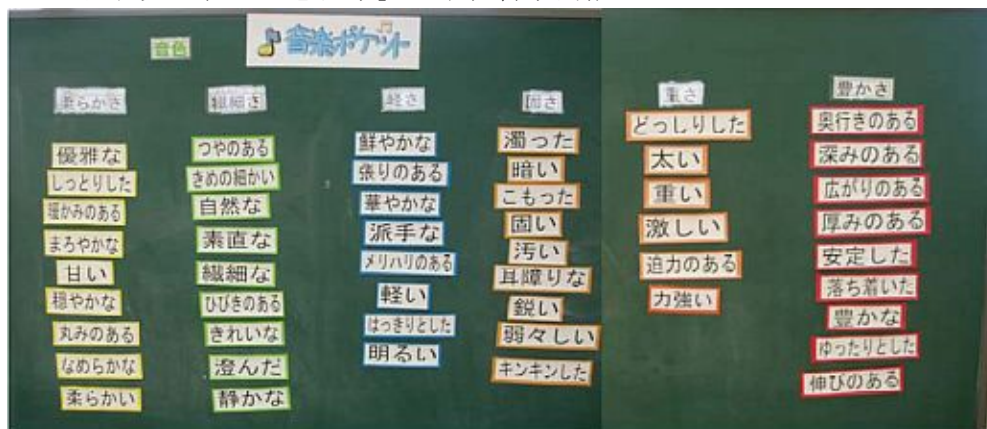 音色
音楽ポケット
柔らかさ
優雅な
しっとりした
暖かみのある
まろやかな
甘い
穏やかな
丸みのある
なめらかな
柔らかい
繊細さ
つやのある
きめの細かい
自然な
素直な
繊細な
ひびきのある
きれいな
澄んだ
静かな
軽さ
鮮やかな
張りのある
華やかな
派手な
メリハリのある
軽い
はっきりとした
明るい
固さ
濁った
暗い
こもった
固い
汚い
耳障りな
鋭い
弱々しい
キンキンした
重さ
どっしりした
太い
重い
激しい
迫力のある
力強い
豊かさ
奥行きのある
深みのある
広がりのある
厚みのある
安定した
落ち着いた
豊かな
ゆったりとした
伸びのある